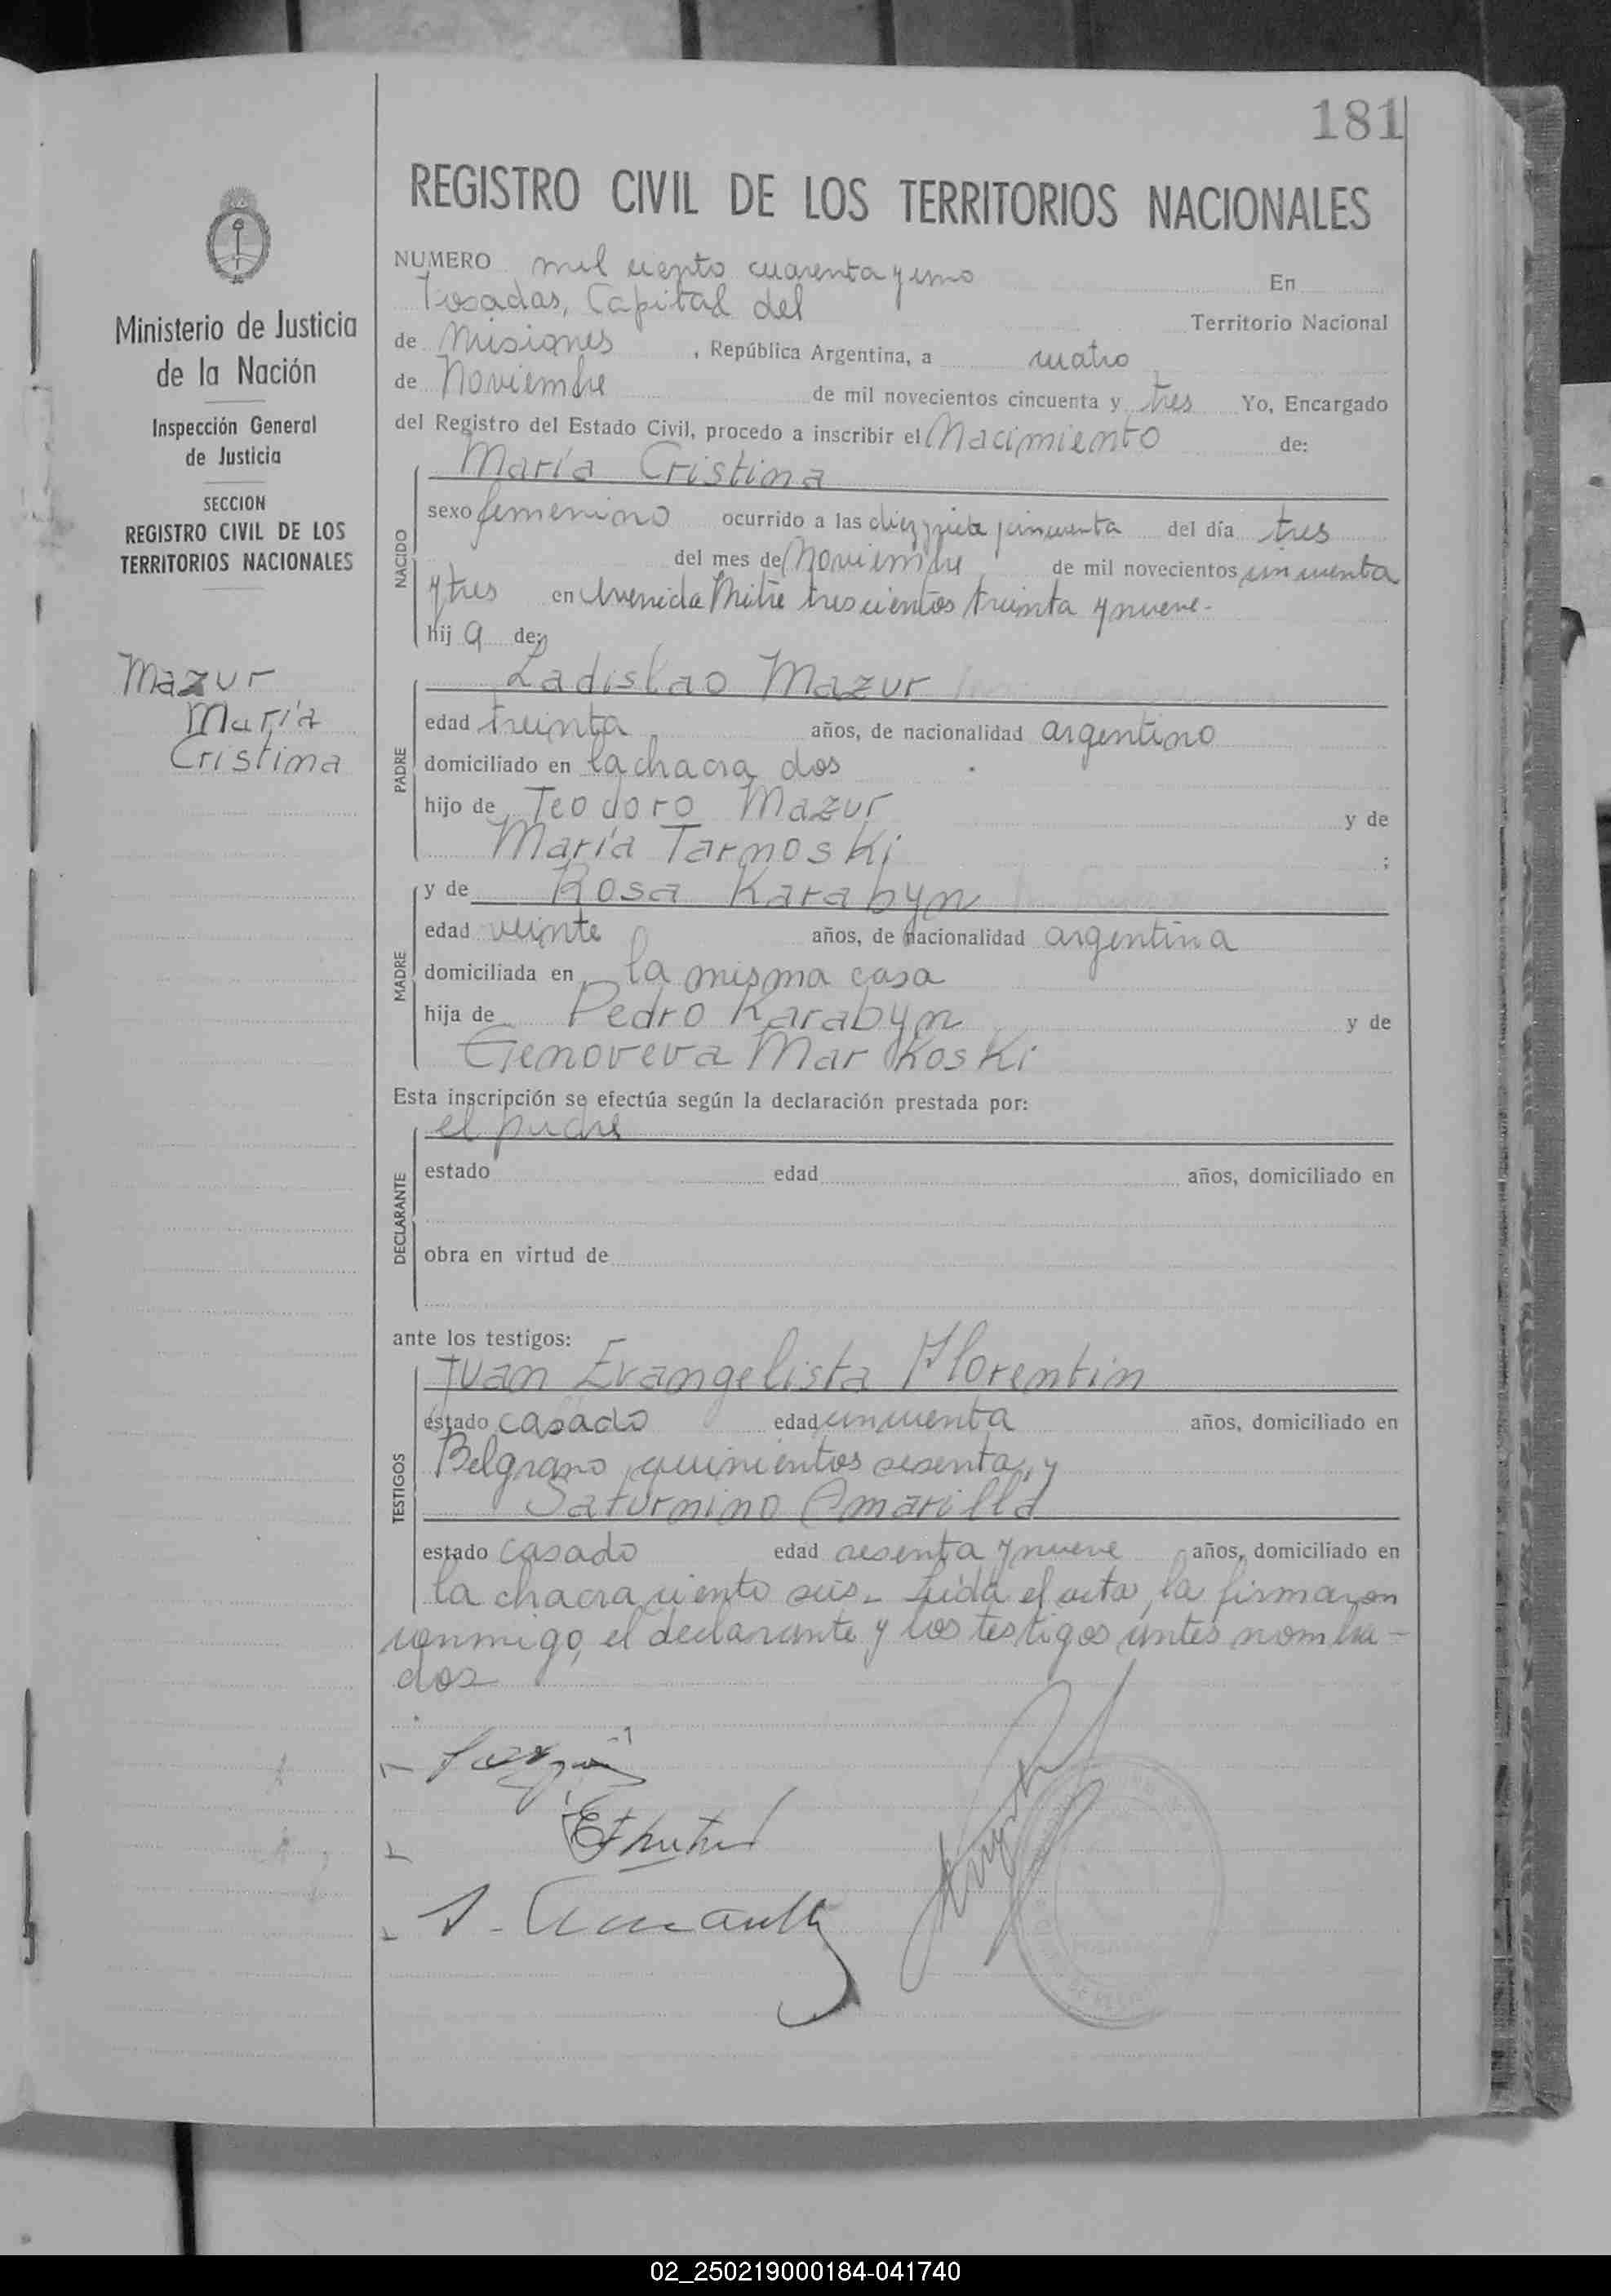 181
REGISTRO CIVIL DE LOS TERRITORIOS NACIONALES
Ministerio de Justicia
de la Nación
Inspección General
de Justicia
SECCION
REGISTRO CIVIL DE LOS
TERRITORIOS NACIONALES
Mazur
María
Cristina
NUMERO mil ciento cuarenta y uno En
Posadas, Capital del Territorio Nacional
de Misiones , República Argentina, a cuatro
de Noviembre de mil novecientos cincuenta y tres Yo, Encargado
del Registro del Estado Civil, procedo a inscribir el Nacimiento de:
NACIDO
María Cristina
sexo femenino ocurrido a las diez y siete y cincuenta del día tres
del mes de Noviembre de mil novecientos cincuenta
y tres en Avenida Mitre trescientos treinta y nueve-
hij a de:
PADRE
Ladislao Mazur
edad treinta años, de nacionalidad argentino
domiciliado en la chacra dos
hijo de Teodoro Mazur y de
María Tarnoski ;
MADRE
y de Rosa Karabyn
edad veinte años, de nacionalidad argentina
domiciliada en la misma casa
hija de Pedro Karabyn y de
Genoveva Markoski
Esta inscripción se efectúa según la declaración prestada por:
DECLARANTE
el padre
estado edad años, domiciliado en
obra en virtud de
ante los testigos:
TESTIGOS
Juan Evangelista Florentin
estado casado edad cincuenta años, domiciliado en
Belgrano quinientos sesenta, y
Saturnino Amarilla
estado casado edad sesenta y nueve años, domiciliado en
la chacra ciento seis- Leída el acta, la firmaron
conmigo, el declarante y los testigos antes nombra-
dos
02_250219000184-041740